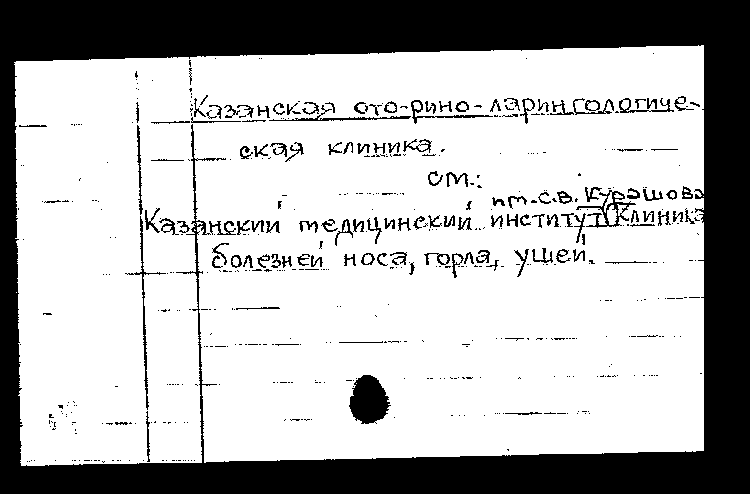 Казанская ото-рино-ларингологиче-
ская клиника.
см.:
им. С.В. Курашова
Казанский медицинский институт Клиника
болезней носа, горла, ушей.